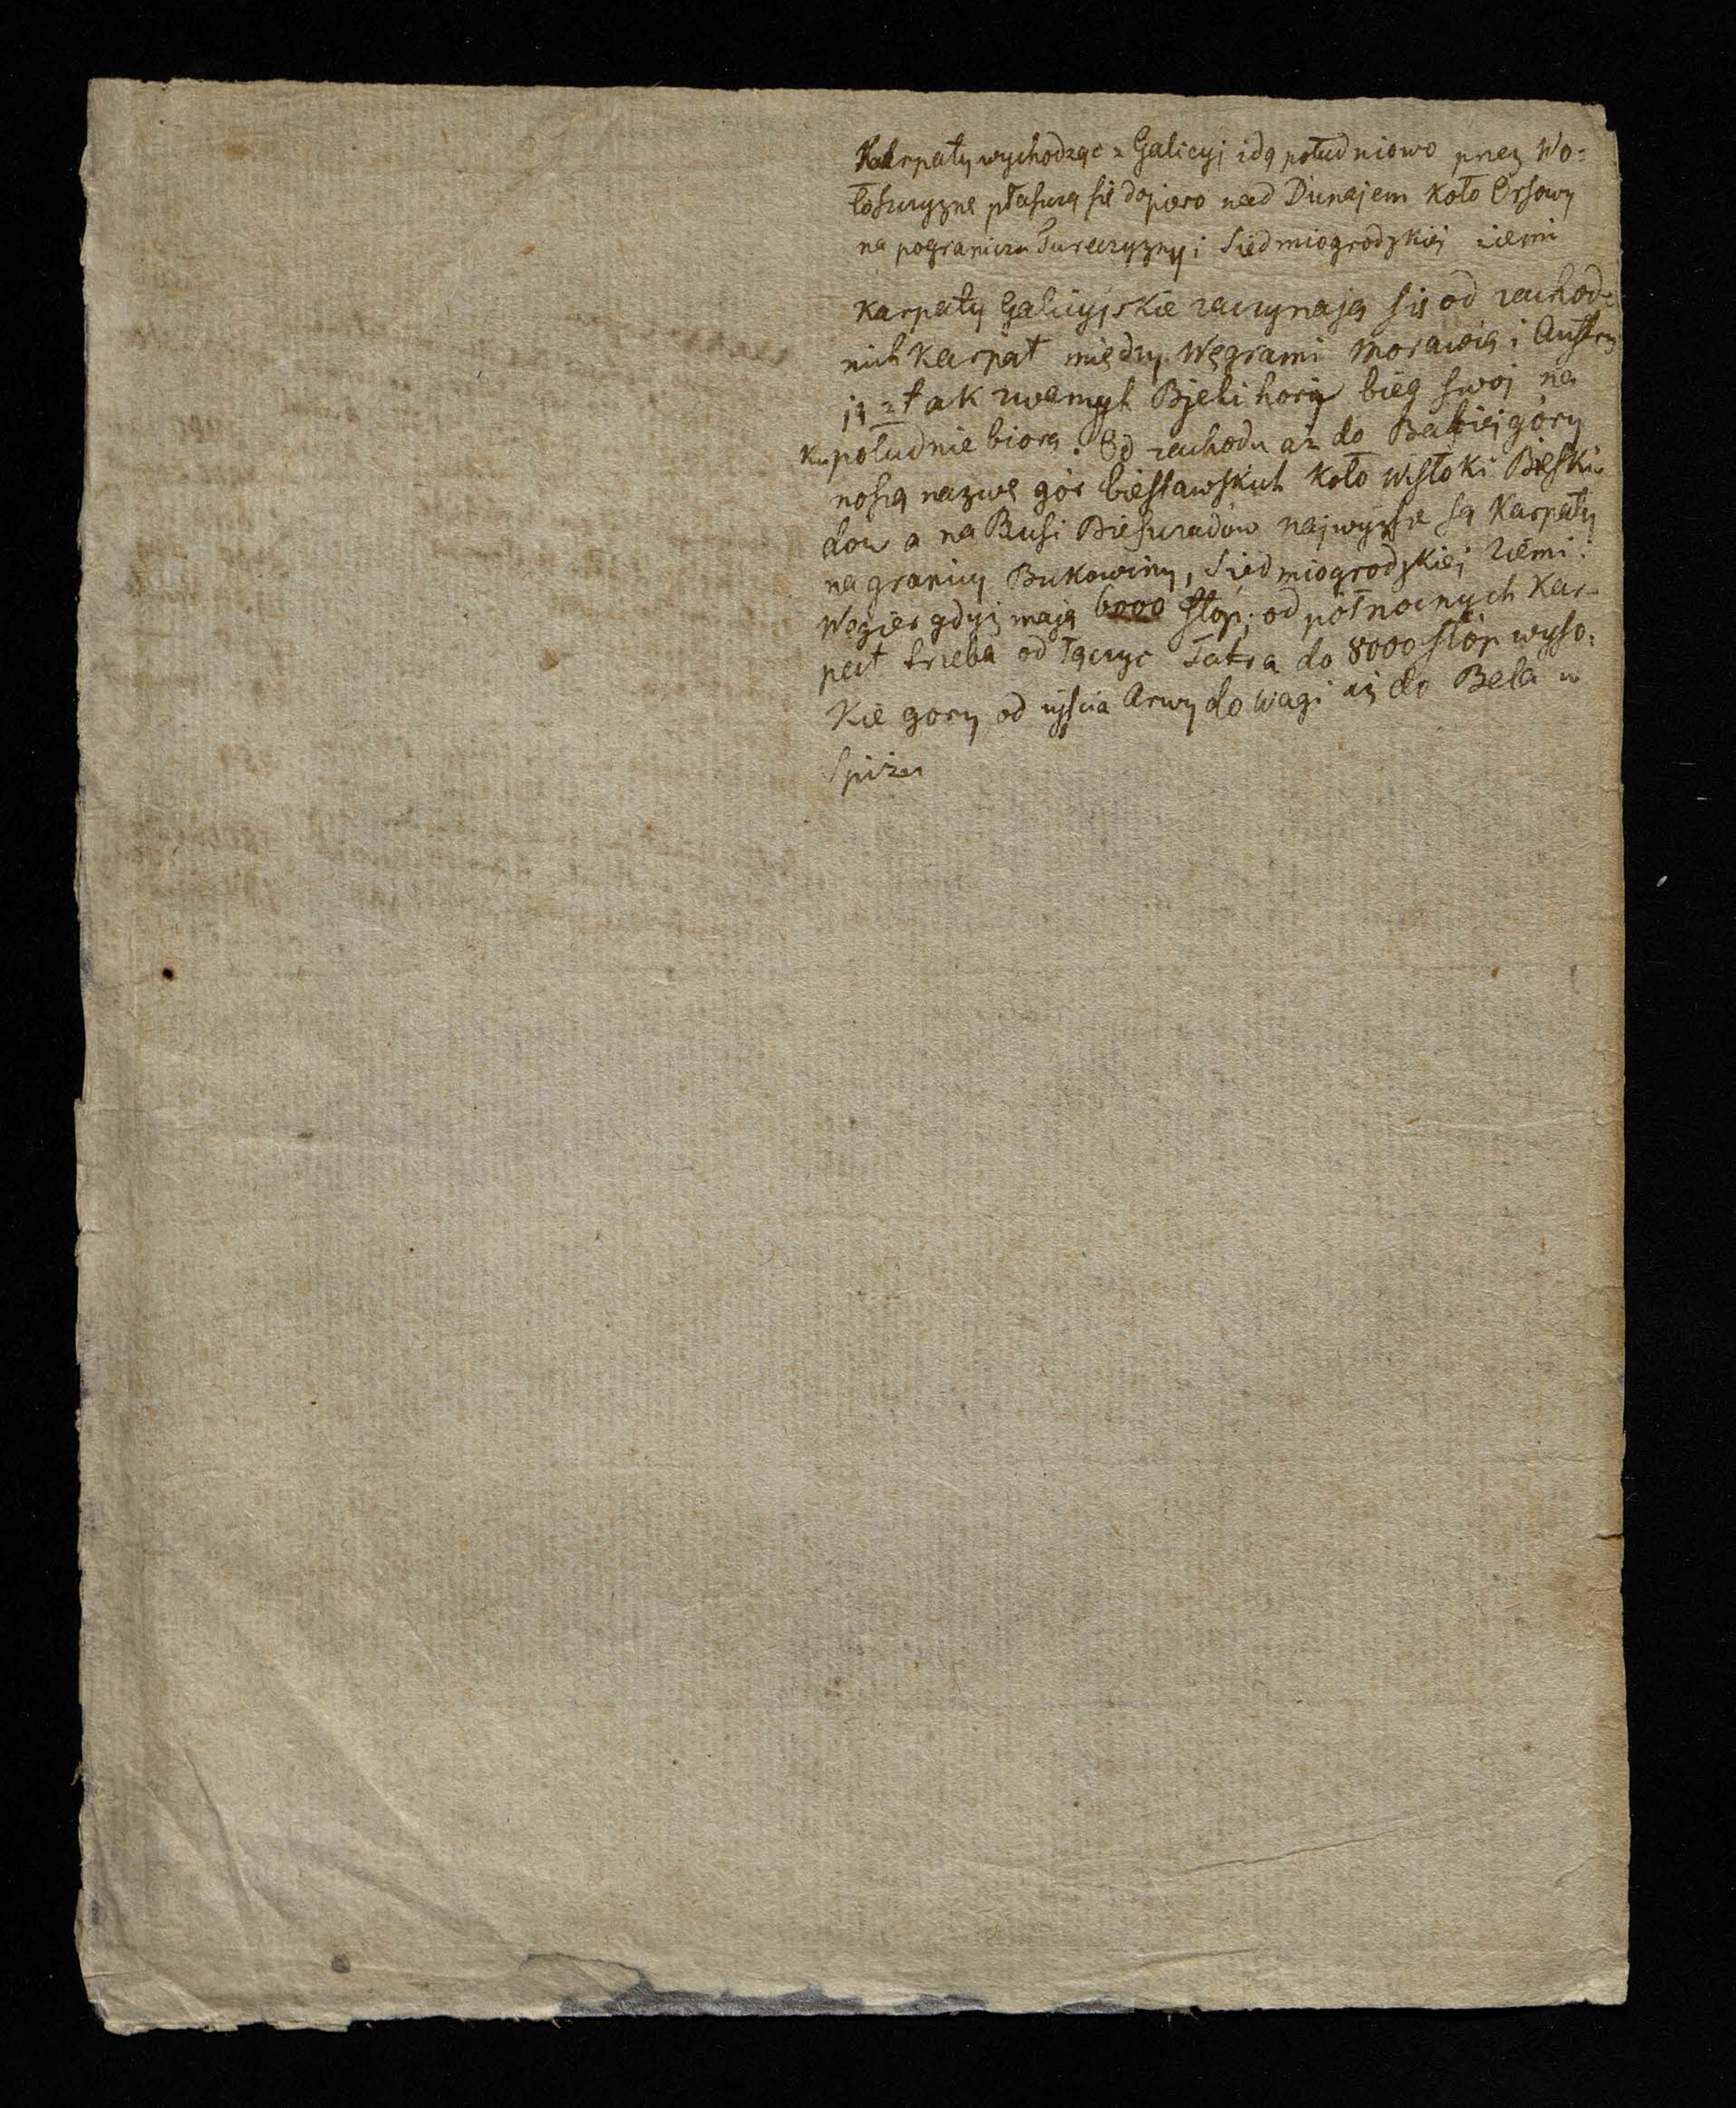 Karpaty wychodząc z Galicyi idą południowo przez Wo=
łoszczyznę płaszczą się dopiero nad Dunajem koło Orsowy
na pograniczu Tureczyzny i Siedmiogrodzkiej ziemi
Karpaty Galicyjskie zaczynają się od zachod=
nich Karpat między Węgrami Morawią i Austry
ją z tak zwanych Bjeli hory bieg swoj na
ku południe biorą. Od zachodu aż do Babiej góry
noszą nazwę gór biesławskich koło Wisłoki Bieski=
dow a na Rusi Bieszczadów najwyższe są Karpaty
na granicy Bukowiny, Siedmiogrodzkiej Ziemi i
Węgier gdyż mają 6000 stóp; od północnych Kar=
pat trzeba odłączyc Tatra do 8000 stóp wyso=
kie gory od ujścia Arwy do Wagi aż do Bela w
Spiżu